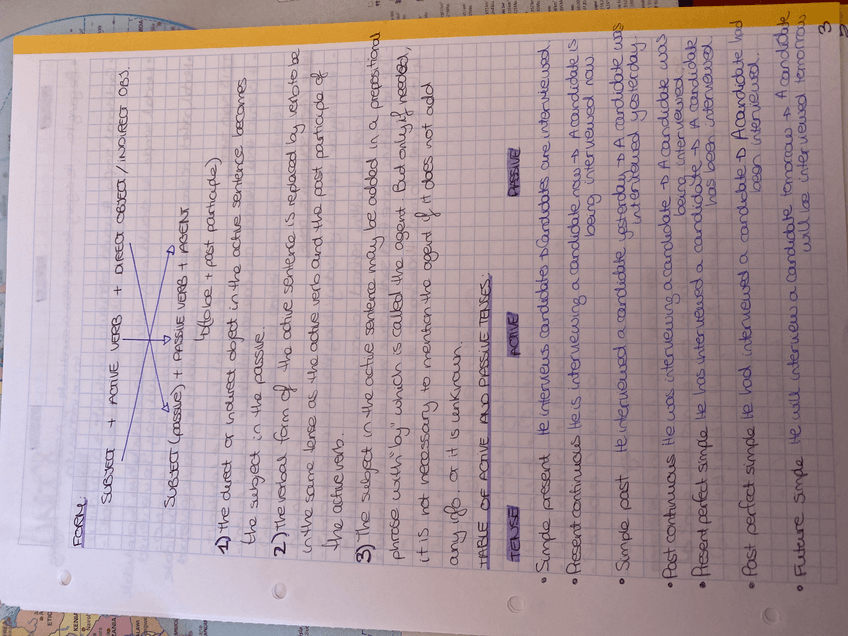 FORM:
SUBJECT + ACTIVE VERB + DIRECT OBJECT / INDIRECT OBJ.
SUBJECT (passive) + PASSIVE VERB + AGENT
(to be + past participle)
1) The direct or indirect object in the active sentence becomes
the subject in the passive.
2) The verbal form of the active sentence is replaced by verb to be
in the same tense as the active verb and the past participle of
the active verb.
3) The subject in the active sentence may be added in a prepositional
phrase with "by" which is called the agent. But only if needed,
it is not necessary to mention the agent if it does not add
any info. or it is unknown.
TABLE OF ACTIVE AND PASSIVE TENSES:
TENSE ACTIVE PASSIVE
• Simple present He interviews candidates → Candidates are interviewed.
• Present continuous He is interviewing a candidate now → A candidate is
being interviewed now.
• Simple past He interviewed a candidate yesterday → A candidate was
interviewed yesterday.
• Past continuous He was interviewing a candidate → A candidate was
being interviewed.
• Present perfect simple He has interviewed a candidate → A candidate
has been interviewed.
• Past perfect simple He had interviewed a candidate → A candidate had
been interviewed.
• Future simple He will interview a candidate tomorrow → A candidate
will be interviewed tomorrow
3
KENIA